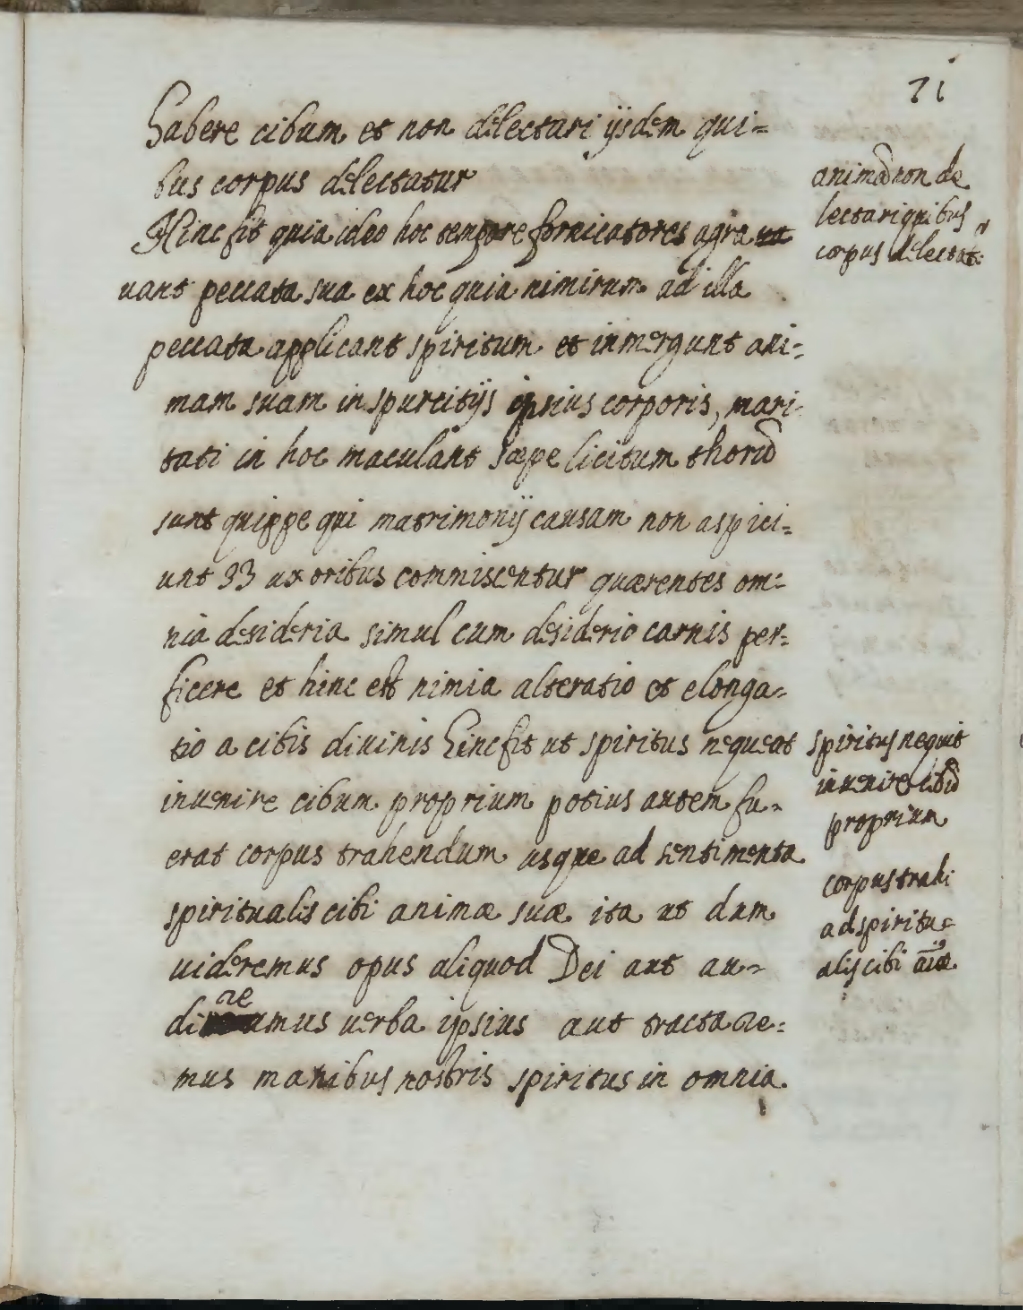 71
habere cibum et non delectari ijsdem qui=
bus corpus delectatur
Hinc fit quia ideo hoc tempore fornicatores agra
uant peccata sua ex hoc quia nimirum ad illa
peccata applicant spiritum et inmergunt ani=
mam suam in spurcitijs ipsius corporis, mari=
tati in hoc maculant sæpe licitum thorū
sunt quippe qui matrimonij causam non aspici=
unt 33 uxoribus commiscentur quærentes om=
nia desideria simul cum desiderio carnis per=
ficere et hinc est nimia alteratio et elonga=
tio a cibis diuinis hinc fit ut spiritus nequeat
inuenire cibum proprium potius autem fu=
erat corpus trahendum usque ad sentimenta
spiritualis cibi animæ suæ ita ut dum
uideremus opus aliquod Dei aut au=
re
di umus uerba ipsius aut tractare=
mus manibus nostris spiritus in omnia
animā non de
lectari quibus
corpus delectat
spiritus nequit
inuenire cibū
proprium
corpus trahi
ad spiritu=
alis cibi aīæ